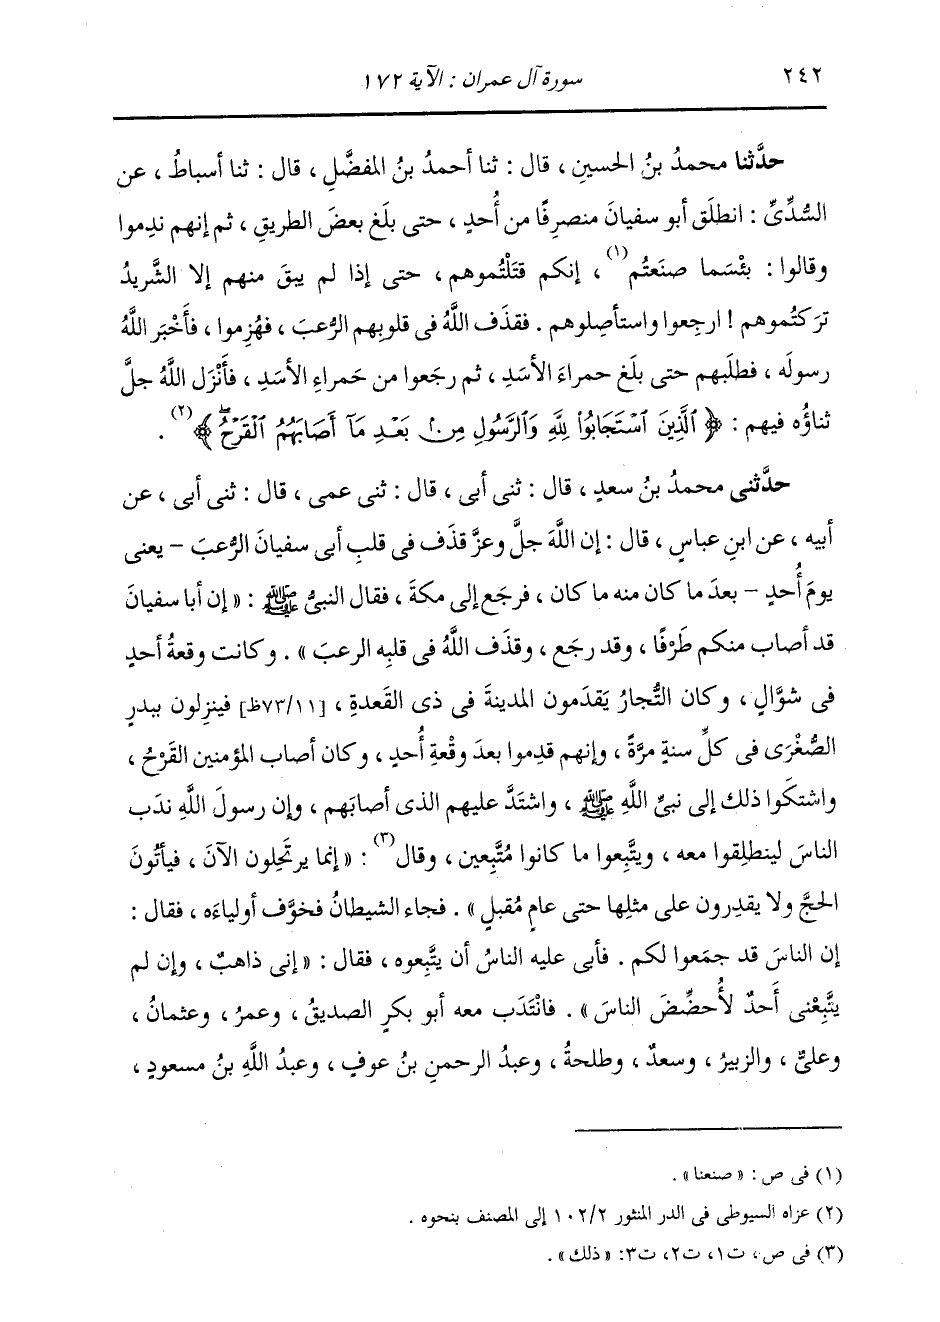 ٢٤٢ سورة آل عمران : الآية ١٧٢
حدَّثنا محمدُ بنُ الحسينِ ، قال : ثنا أحمدُ بنُ المفضَّلِ ، قال : ثنا أسباطُ ، عن
السُّدِّىِّ : انطلَق أبو سفيانَ منصرِفًا من أُحدٍ ، حتى بلَغ بعضَ الطريقِ ، ثم إنهم ندِموا
وقالوا : بئْسَما صنَعتُم(١) ، إنكم قتَلْتُموهم ، حتى إذا لم يبقَ منهم إلا الشَّريدُ
ترَكتُموهم ! ارجِعوا واستأصِلوهم . فقذَف اللَّهُ فى قلوبِهم الرُّعبَ ، فهُزِموا ، فأَخْبَر اللَّهُ
رسولَه ، فطلَبهم حتى بلَغ حمراءَ الأسَدِ ، ثم رجَعوا من حَمراءِ الأسَدِ ، فأَنْزَل اللَّهُ جلَّ
ثناؤُه فيهم : ﴿ ٱلَّذِينَ ٱسْتَجَابُوا۟ لِلَّهِ وَٱلرَّسُولِ مِنۢ بَعْدِ مَآ أَصَابَهُمُ ٱلْقَرْحُ ۚ ﴾(٢) .
حدَّثنى محمدُ بنُ سعدٍ ، قال : ثنى أبى ، قال : ثنى عمى ، قال : ثنى أبى ، عن
أبيه ، عن ابنِ عباسٍ ، قال : إن اللَّهَ جلَّ وعزَّ قذَف فى قلبِ أبى سفيانَ الرُّعبَ - يعنى
يومَ أُحدٍ - بعدَ ما كان منه ما كان ، فرجَع إلى مكةَ ، فقال النبىُّ ﷺ : « إن أبا سفيانَ
قد أصاب منكم طَرْفًا ، وقد رجَع ، وقذَف اللَّهُ فى قلبِه الرعبَ » . وكانت وقعةُ أحدٍ
فى شوَّالٍ ، وكان التُّجارُ يَقدَمون المدينةَ فى ذى القَعدةِ ، [٧٣/١١ظ] فينزِلون ببدرٍ
الصُّغْرَى فى كلِّ سنةٍ مرَّةً ، وإنهم قدِموا بعدَ وقْعةِ أُحدٍ ، وكان أصاب المؤمنين القَرْحُ ،
واشتكَوا ذلك إلى نبىِّ اللَّهِ ﷺ ، واشتَدَّ عليهم الذى أصابَهم ، وإن رسولَ اللَّهِ ندَب
الناسَ لينطلِقوا معه ، ويتَّبِعوا ما كانوا مُتَّبِعين ، وقال(٣) : « إنما يرتَحِلون الآنَ ، فيأتُونَ
الحجَّ ولا يقدِرون على مثلِها حتى عامٍ مُقبلٍ » . فجاء الشيطانُ فخوَّف أولياءَه ، فقال :
إن الناسَ قد جمَعوا لكم . فأبى عليه الناسُ أن يتَّبِعوه ، فقال : « إنى ذاهبٌ ، وإن لم
يتَّبِعْنى أَحدٌ لأُحضِّضَ الناسَ » . فانْتَدَب معه أبو بكرٍ الصديقُ ، وعمرُ ، وعثمانُ ،
وعلىٌّ ، والزبيرُ ، وسعدٌ ، وطلحةُ ، وعبدُ الرحمنِ بنُ عوفٍ ، وعبدُ اللَّهِ بنُ مسعودٍ ،
(١) فى ص : « صنعنا » .
(٢) عزاه السيوطى فى الدر المنثور ١٠٢/٢ إلى المصنف بنحوه .
(٣) فى ص ، ت١، ت٢، ت٣: « ذلك » .